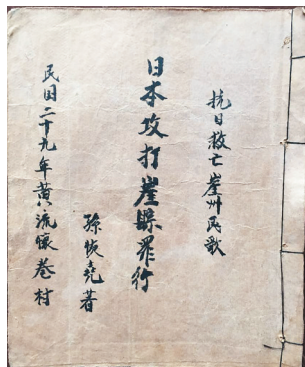 抗日救亡崖州民歌
日本攻打崖县罪行
孙俊尧著
民国二十九年黄流怀卷村